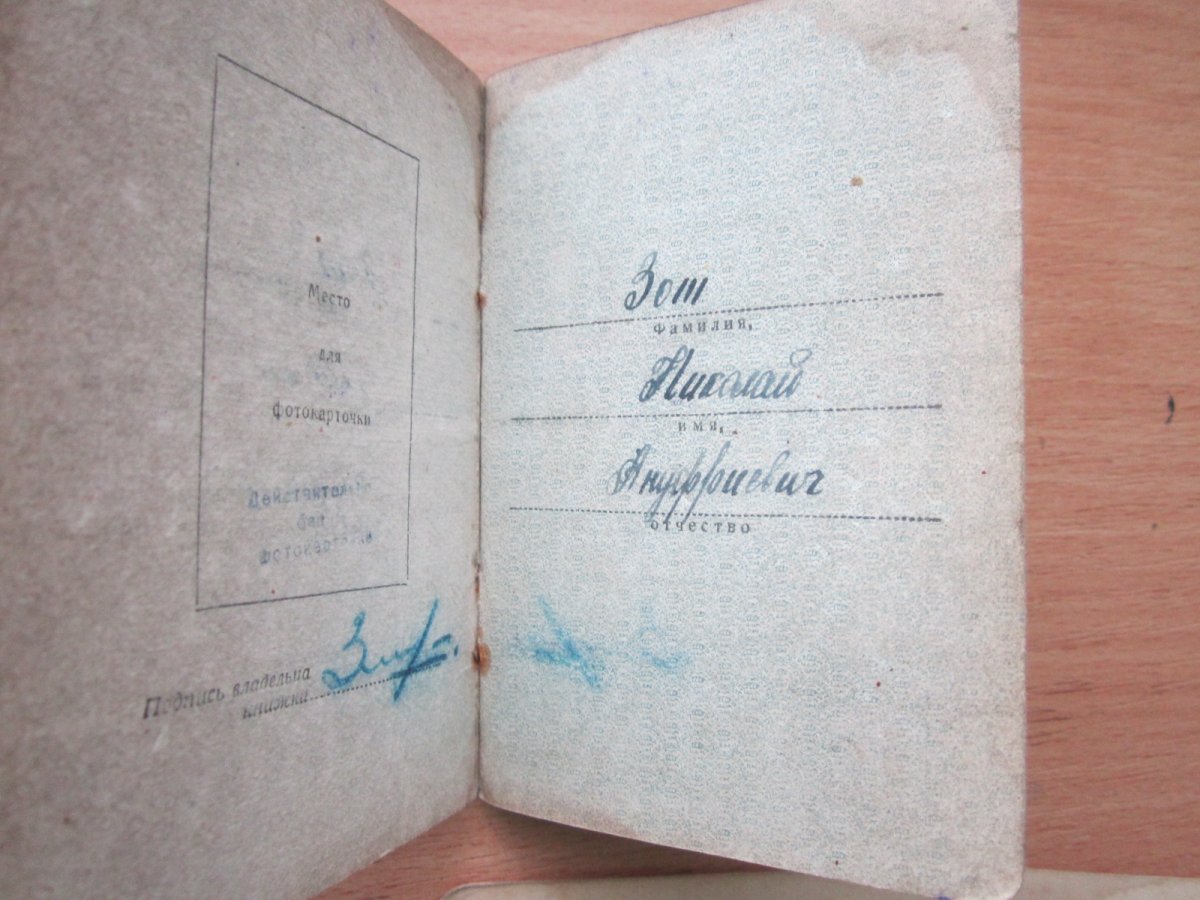 Место
для
фотокарточки
Действительно
без
фотокарточки
Подпись владельца
книжки
Зот
фамилия,
Николай
имя,
Ануфриевич
отчество